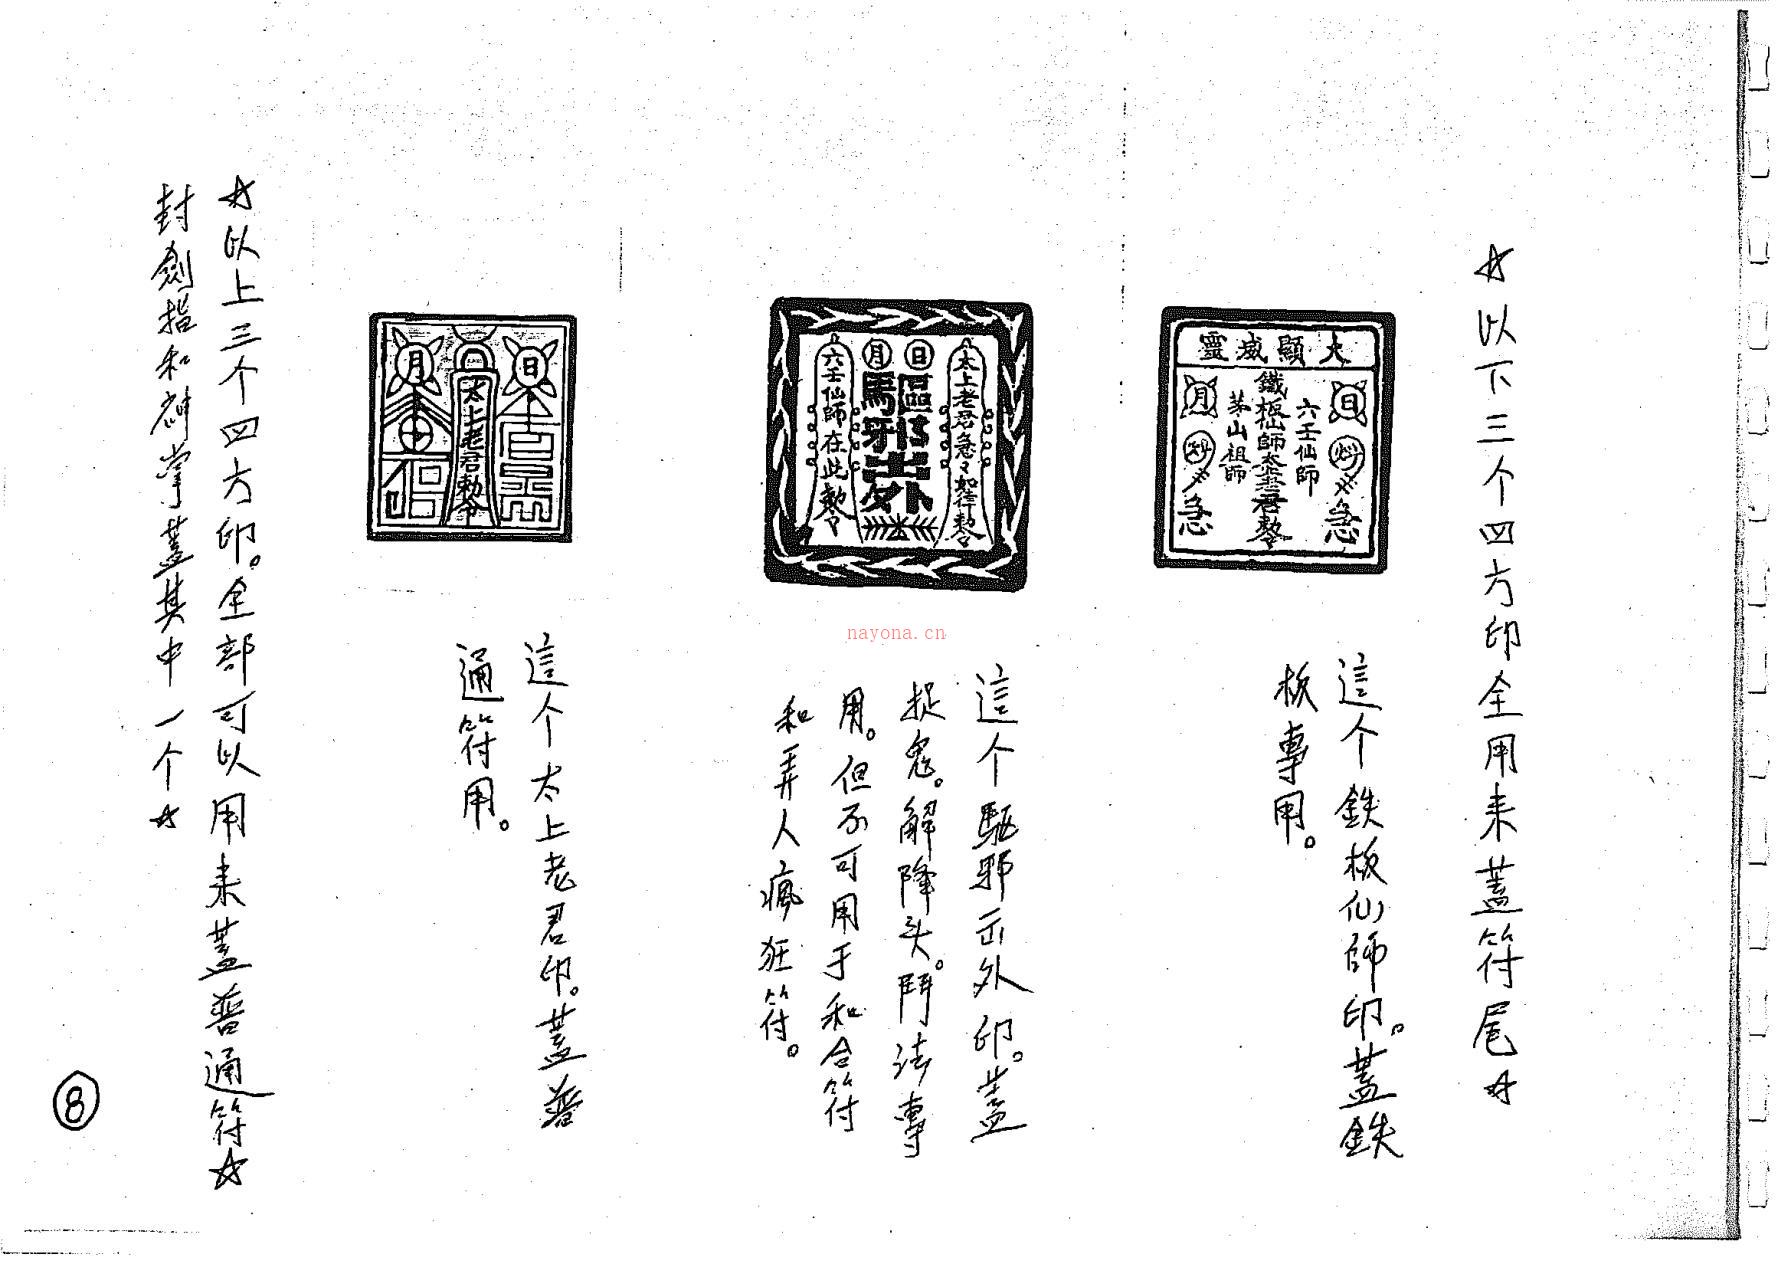 ☆以下三个四方印全用来蓋符尾☆
大顯威靈
日
六壬仙師
急
茅山祖師
月
急
這个鉄板仙師印。蓋鉄
板專用。
太上老君急々如律勅令
日
月
驅邪出外
六壬仙師在此勅令
這个驅邪出外印。蓋
捉鬼。解降头。鬥法專
用。但不可用于和合符
和弄人瘋狂符。
日
太上老君勅令
月
這个太上老君印。蓋普
通符用。
☆以上三个四方印。全部可以用来蓋普通符☆
封劍指和神掌蓋其中一个☆
8
nayona.cn